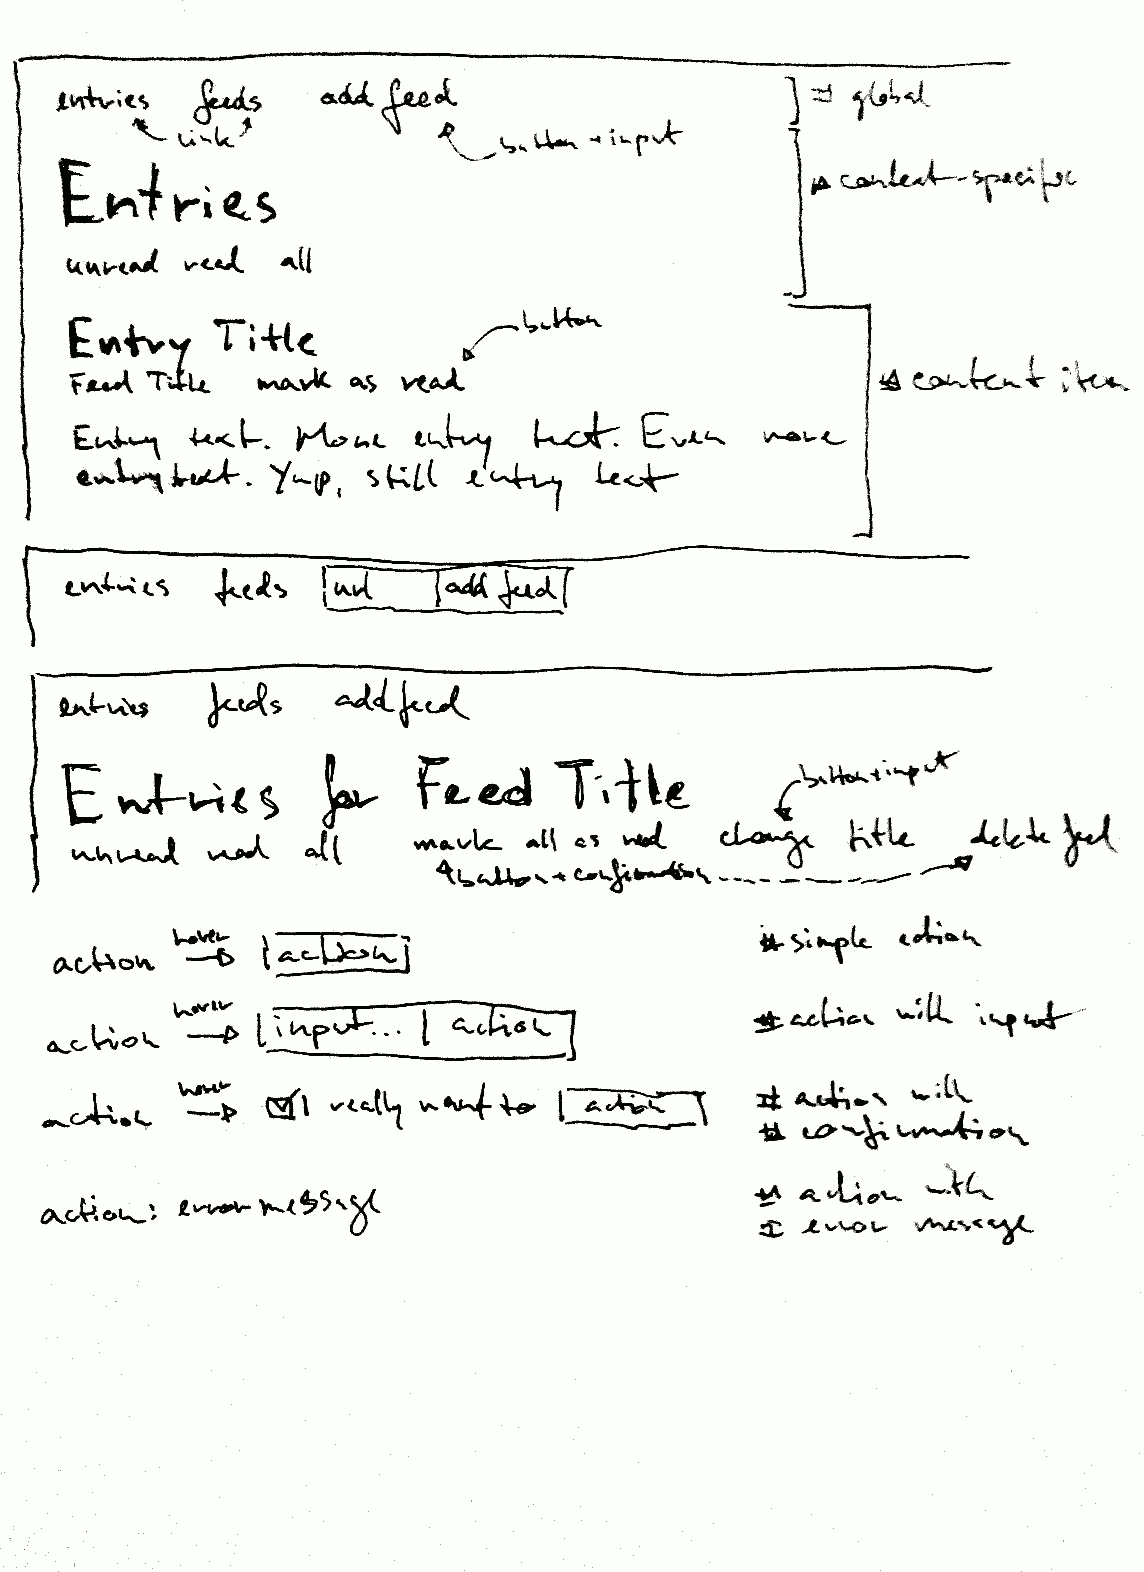 entries feeds add feed # global
link button + input
# context-specific
Entries
unread read all
Entry Title button
Feed Title mark as read # content item
Entry text. More entry text. Even more
entry text. Yup, still entry text
entries feeds url add feed
entries feeds add feed
Entries for Feed Title button + input
unread read all mark all as read change title delete feed
button + confirmation
action hover action # simple action
action hover input... action # action with input
action hover I really want to action # action with
# confirmation
action: error message # action with
# error message